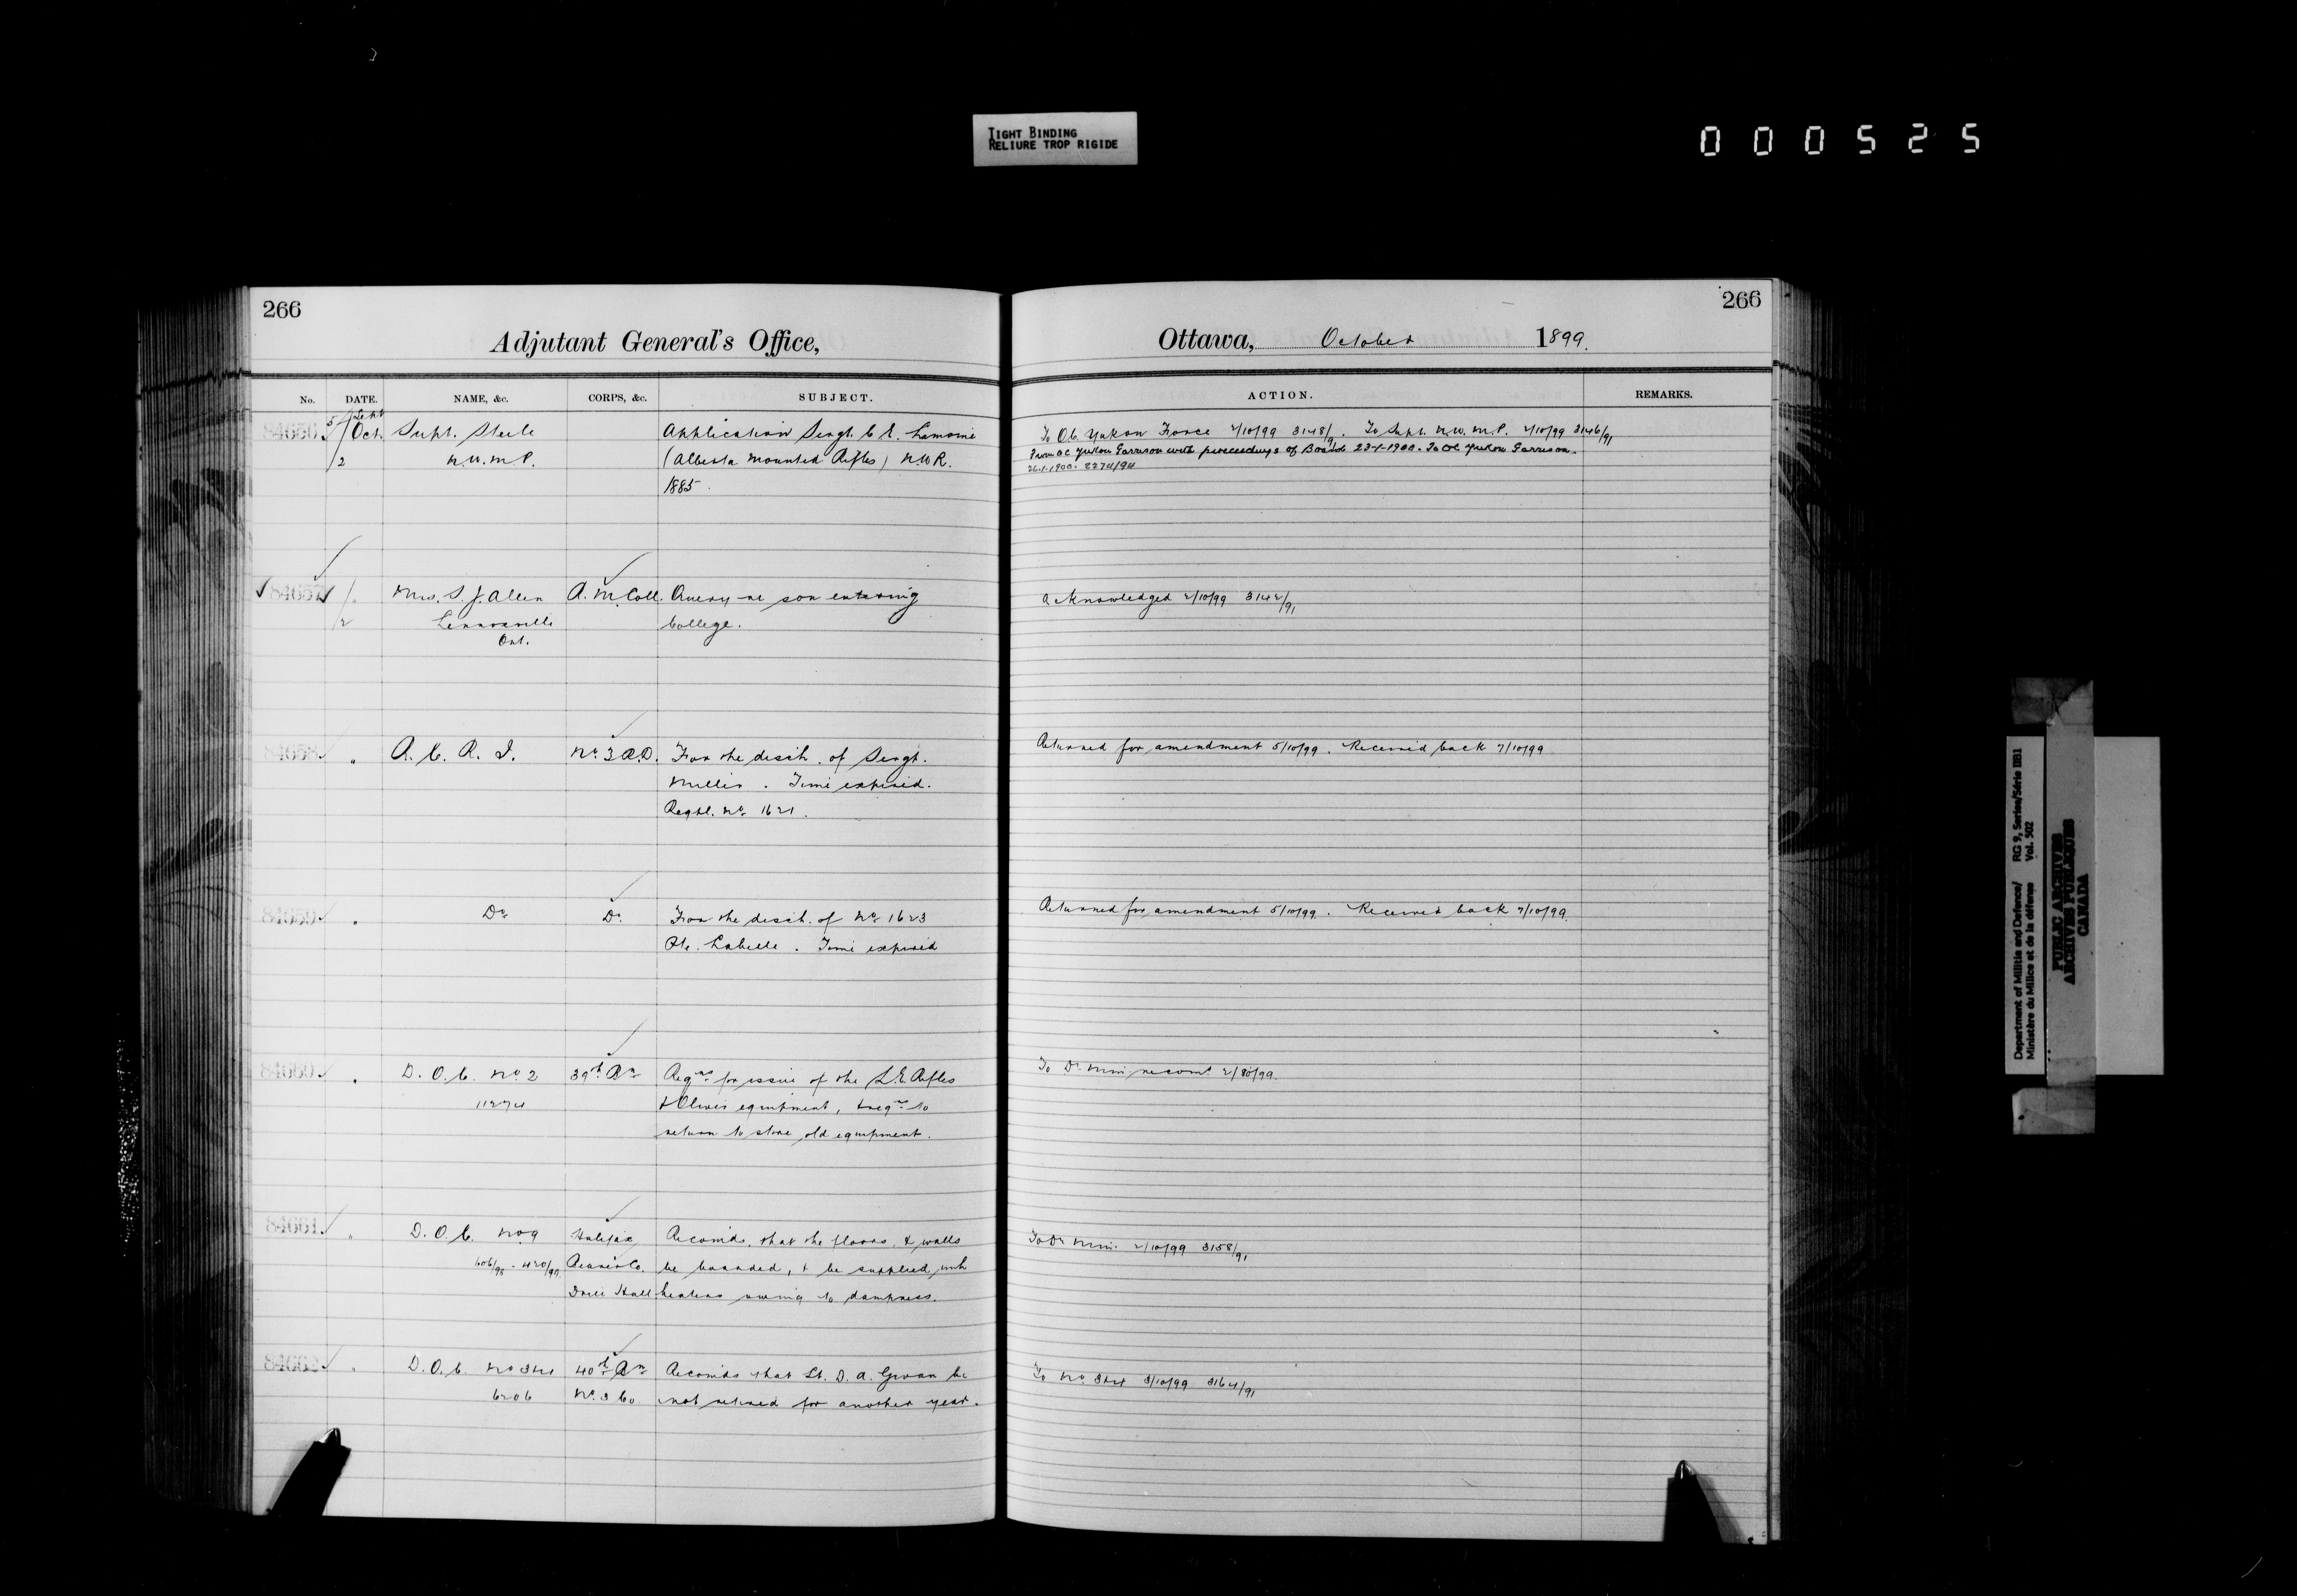 TIGHT BINDING
RELIURE TROP RIGIDE
000525
266
Adjutant General's Office,
No. DATE. NAME, &c. CORPS, &c. SUBJECT.
84656 5/Sept Oct. Supt. Steele Application Sergt. C. E. Lamoine
2 N.W.M.P. (Alberta Mounted Rifles) N.W.R.
1885.
84657 " Mrs. S. J. Allen R.M. Coll. Query re son entering
2 Lennoxville College.
Ont.
84658 " R. C. R. I. No. 3 R.D. For the disch. of Sergt.
Millis. Time expired.
Regtl. No. 1621.
84659 " Do. Do. For the disch. of No. 1623
Pte. Labelle. Time expired
84660 " D. O. C. No. 2 39th Bn Reqns for issue of the L.E. Rifles
11274 & Oliver equipment, & reqns to
return to store old equipment.
84661 " D. O. C. No 9 Halifax Recomds. that the floors, & walls
606/98 . 420/97 Bearer Co. be boarded, & be supplied with
Drill Hall heaters owing to dampness.
84662 " D. O. C. No 3&4 40th Bn Recomds that Lt. D. A. be
6206 No. 3 Co. not retired for another year.
266
Ottawa, October 1899.
ACTION. REMARKS.
To O.C. Yukon Force 2/10/99 3148/91. To Supt. N.W.M.P. 2/10/99 3146/91
From OC Yukon Garrison with proceedings of Board 23-1-1900. To OC Yukon Garrison.
26-1-1900. 8274/94
Acknowledged 2/10/99 3142/91
Returned for amendment 5/10/99. Received back 7/10/99
Returned for amendment 5/10/99. Received back 7/10/99.
To Dr. Min recomd. 2/10/99.
To Dr. Min. 2/10/99 3158/91
To No. 3&4 3/10/99 3164/91
Department of Militia and Defence/ RG 9, Series/Série IIB1
Ministère du Milice et de la défense Vol. 502
PUBLIC ARCHIVES
ARCHIVES PUBLIQUES
CANADA